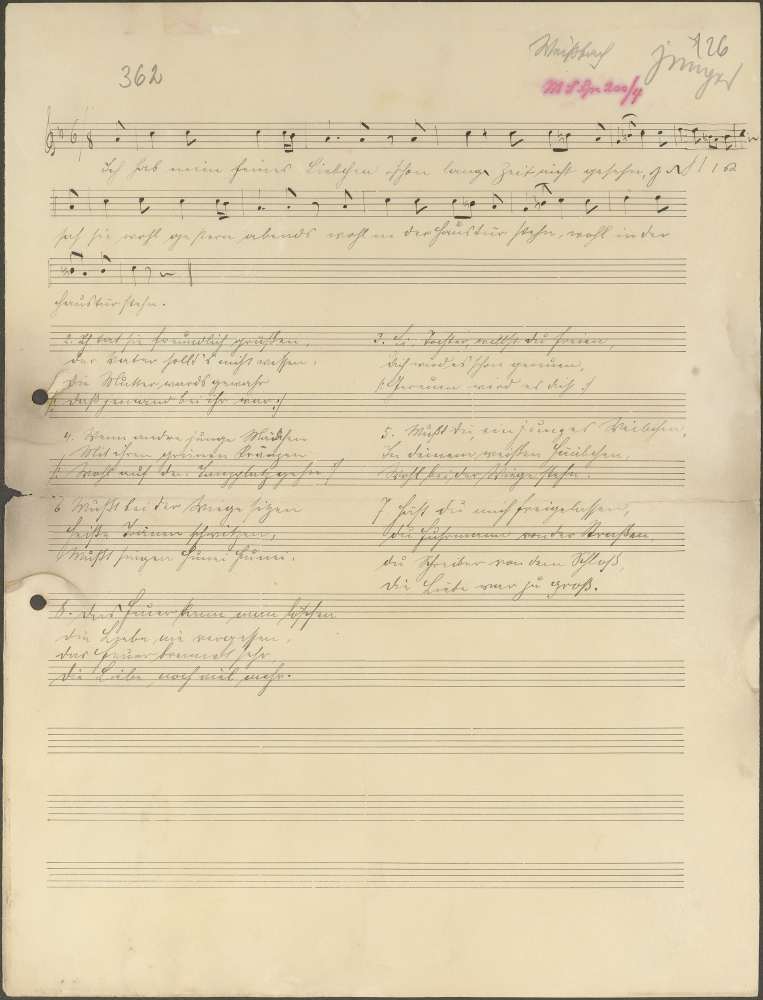 362
Weißbach
126
Ich hab mein feines Liebchen schon lange Zeit nicht gesehn,
sah sie wohl gestern abends wohl in der Haustür stehn, wohl in der
Haustür stehn.
2. Ich tat sie freundlich grüßen,
der Vater sollt's nicht wissen.
Die Mutter ward's gewahr
|: daß jemand bei ihr war. :|
3. Ei, Tochter, willst du freien
dich wird es schon gereuen,
|: Gereuen wird es dich :|
4. Wenn andre junge Mädchen
Mit ihren grünen Kränzen
|: Wohl auf den Tanzplatz gehn :|
5. Mußt du, ein junges Weibchen,
In deinem weißen Häubchen,
Wohl bei der Wiege stehn.
6 Mußt bei der Wiege sitzen
Heiße Tränen schwitzen,
Mußt singen
7 Hast du
du Fuhrmann von der Straßen,
du Schreiber von dem Schloß,
die Liebe war zu groß.
8. Das Feuer kann man löschen
die Liebe nie vergessen,
das Feuer brennet sehr,
die Liebe noch viel mehr.